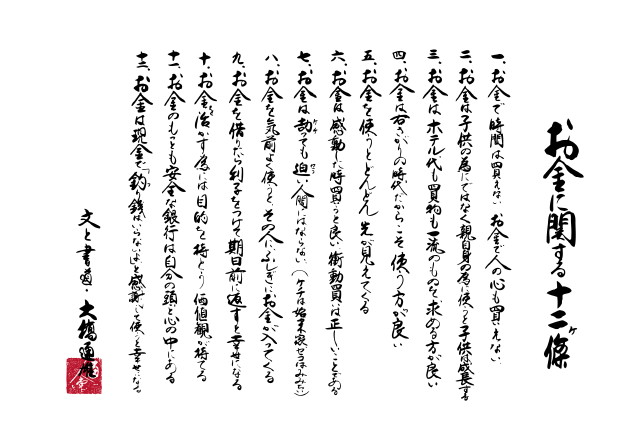 お金に関する十二ヶ條
一、お金で時間は買えない お金で人の心も買えない
二、お金は子供の為にではなく親自身の為に使うと子供は成長する
三、お金はホテル代も買物も一流のものを求める方が良い
四、お金は右さがりの時代だからこそ使う方が良い
五、お金を使うとどんどん先が見えてくる
六、お金は感動した時買うと良い 衝動買は正しいことである
七、お金は劾っても迫い人間にはならない（ケチは始末 迫い）
八、お金を気前よく使うと、その人にふしぎにお金が入ってくる
九、お金を借りたら利子をつけて期日前に返すと幸せになる
十、お金を活かす為には目的を持とう 価値観が持てる
十一、お金のもっとも安全な銀行は自分の頭と心の中にある
十二、お金は現金で「釣り銭はいらないよ」と感謝して使うと幸せになる
文と書道・大橋